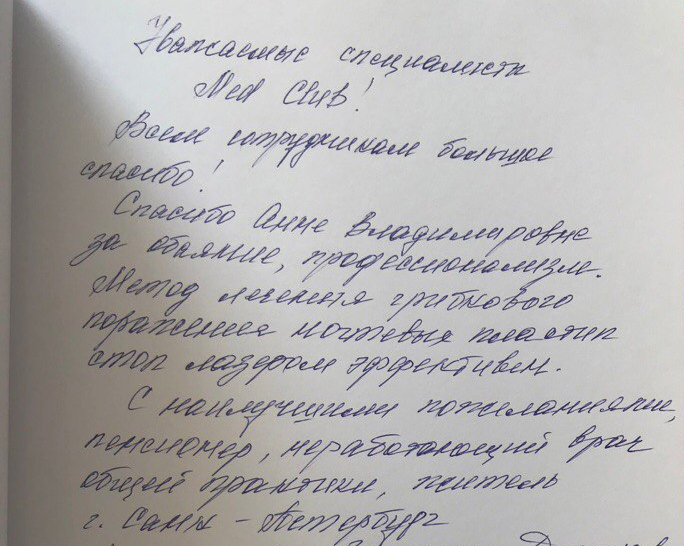 Уважаемые специалисты
Med Club!
Всем сотрудникам большое
спасибо!
Спасибо Анне Владимировне
за обаяние, профессионализм.
Метод лечения грибкового
поражения ногтевых пластин
стоп лазером эффективен.
С наилучшими пожеланиями,
пенсионер, неработающий врач
общей практики, житель
г. Санкт-Петербург